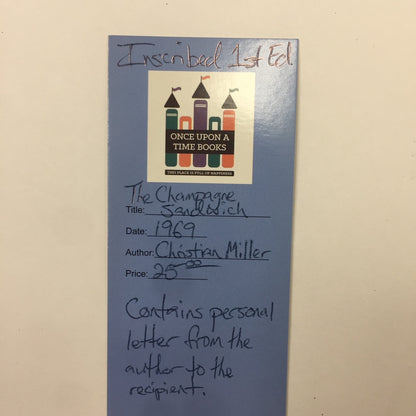 Inscribed 1st Ed.
ONCE UPON A
TIME BOOKS
THIS PLACE IS FULL OF HAPPINESS
The Champagne
Title: Sandwich
Date: 1969
Author: Christian Miller
Price: 25.00
Contains personal
letter from the
author to the
recipient.